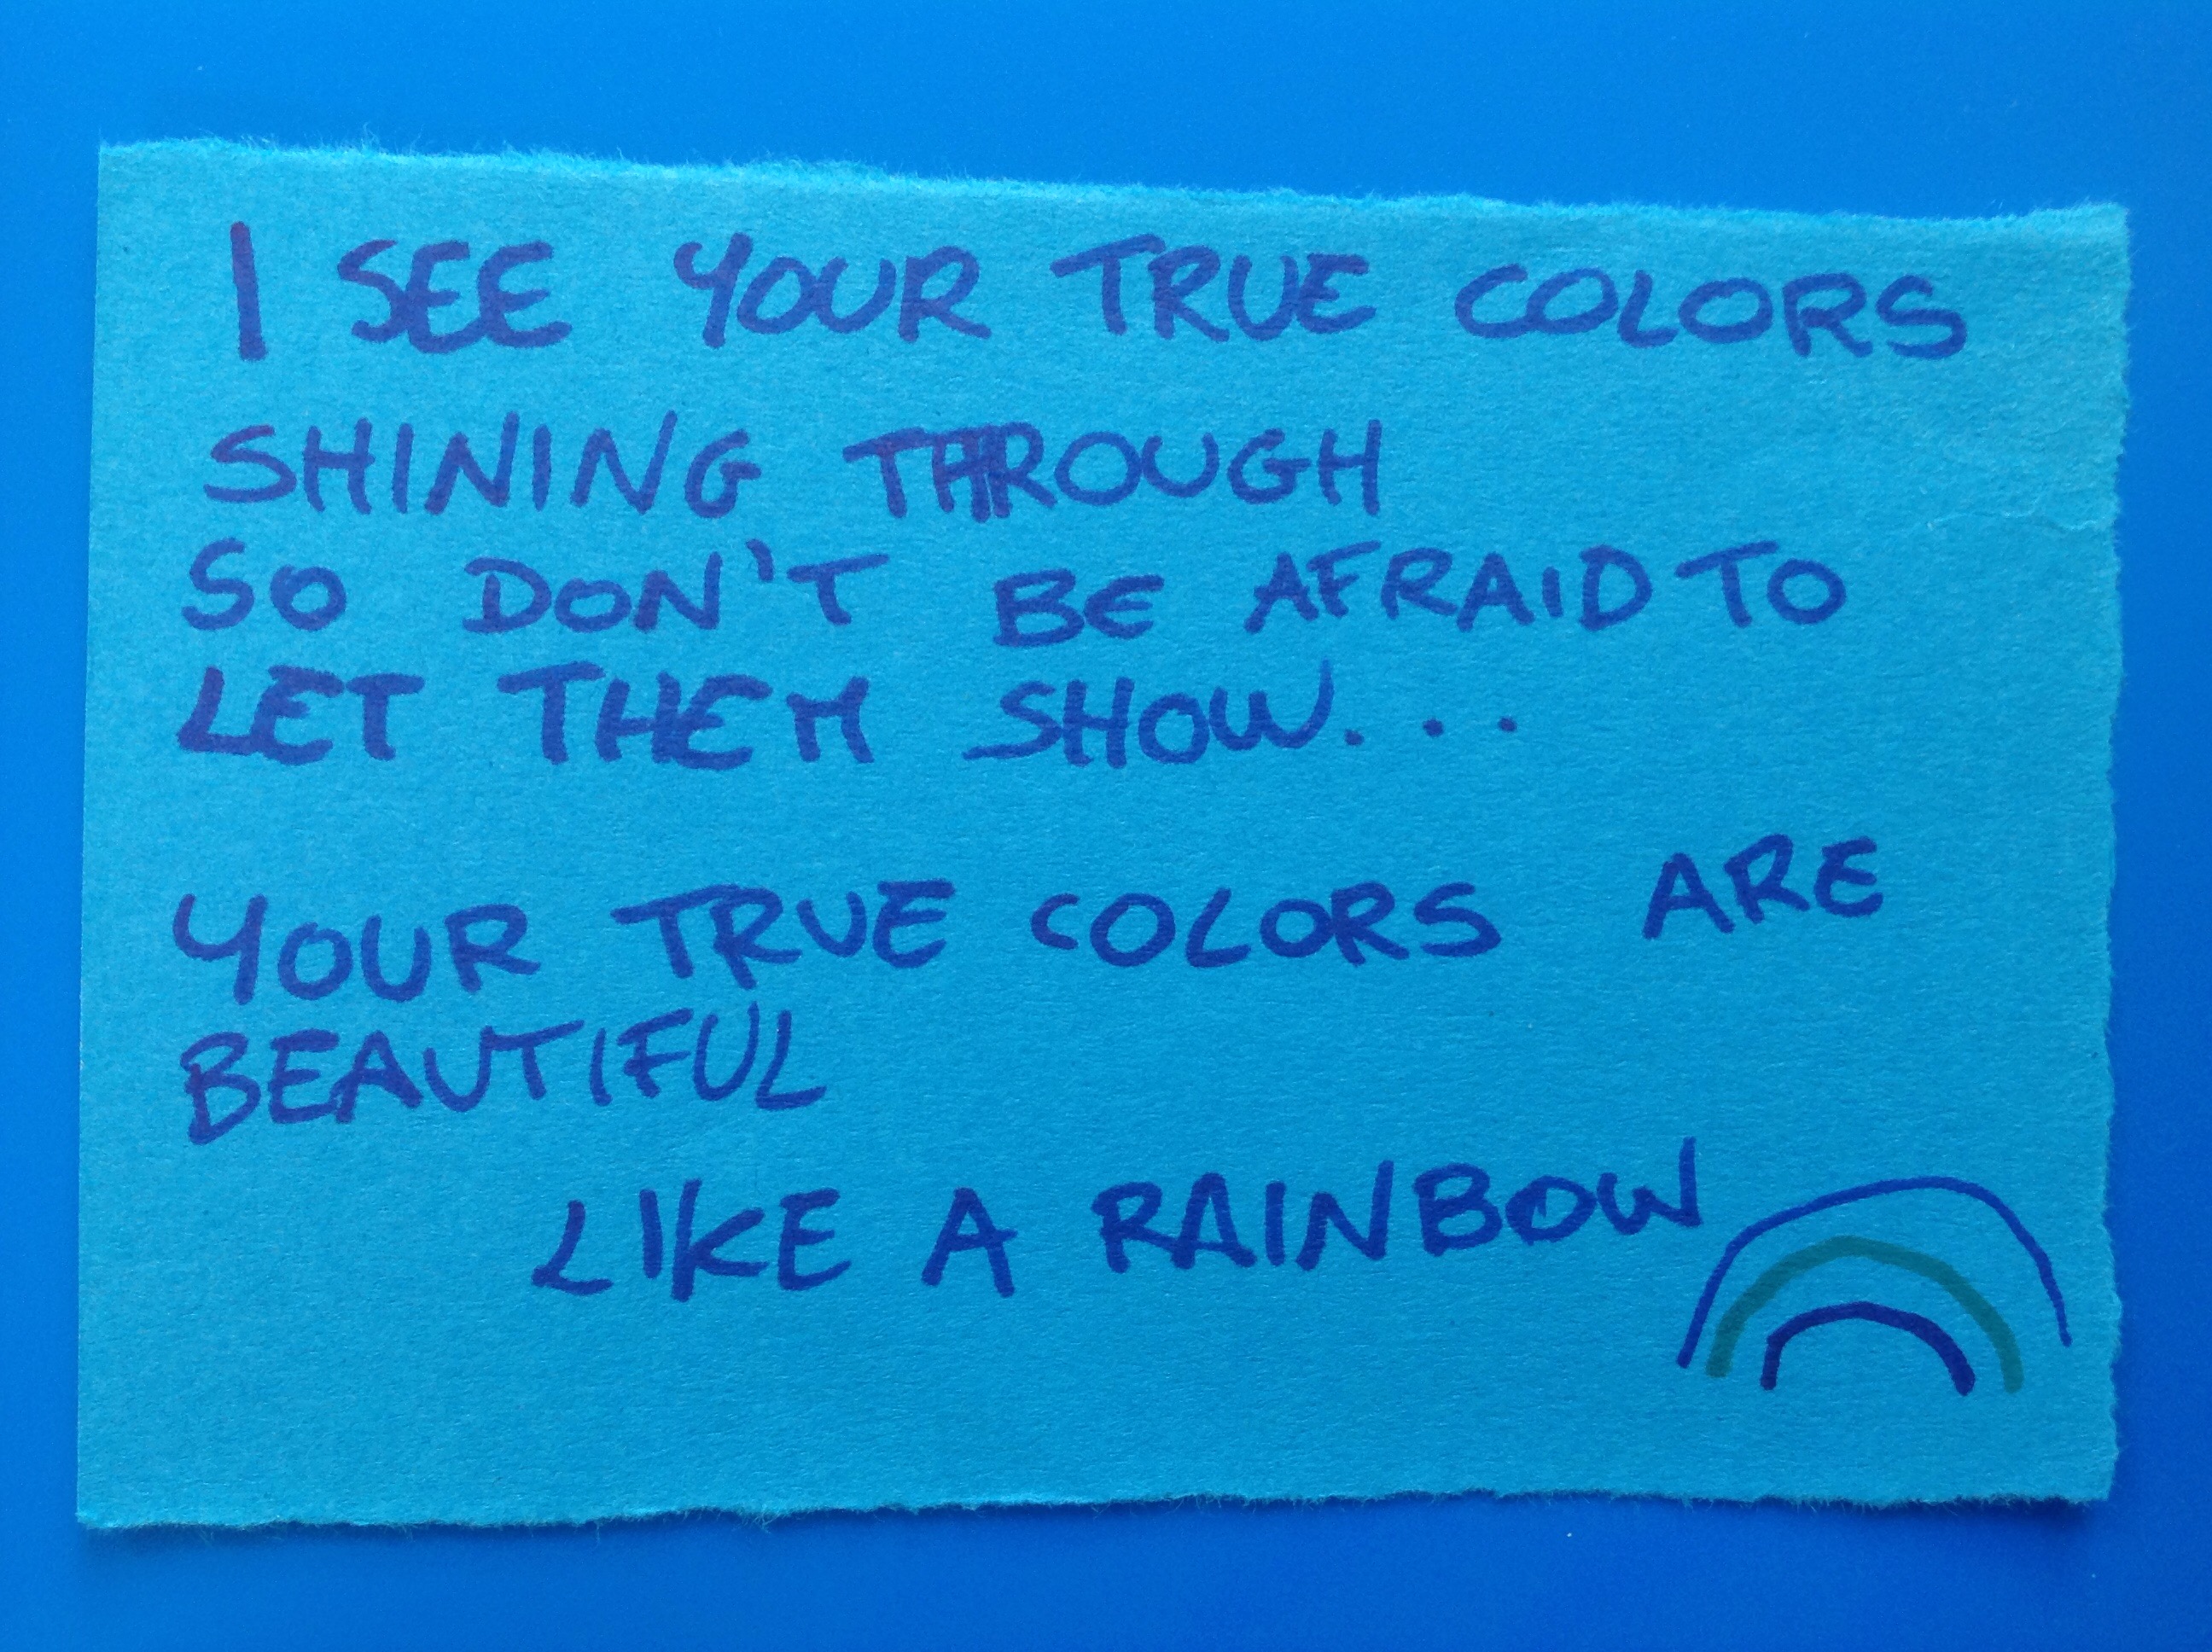 I SEE YOUR TRUE COLORS
SHINING THROUGH
SO DON'T BE AFRAID TO
LET THEM SHOW...
YOUR TRUE COLORS ARE
BEAUTIFUL
LIKE A RAINBOW